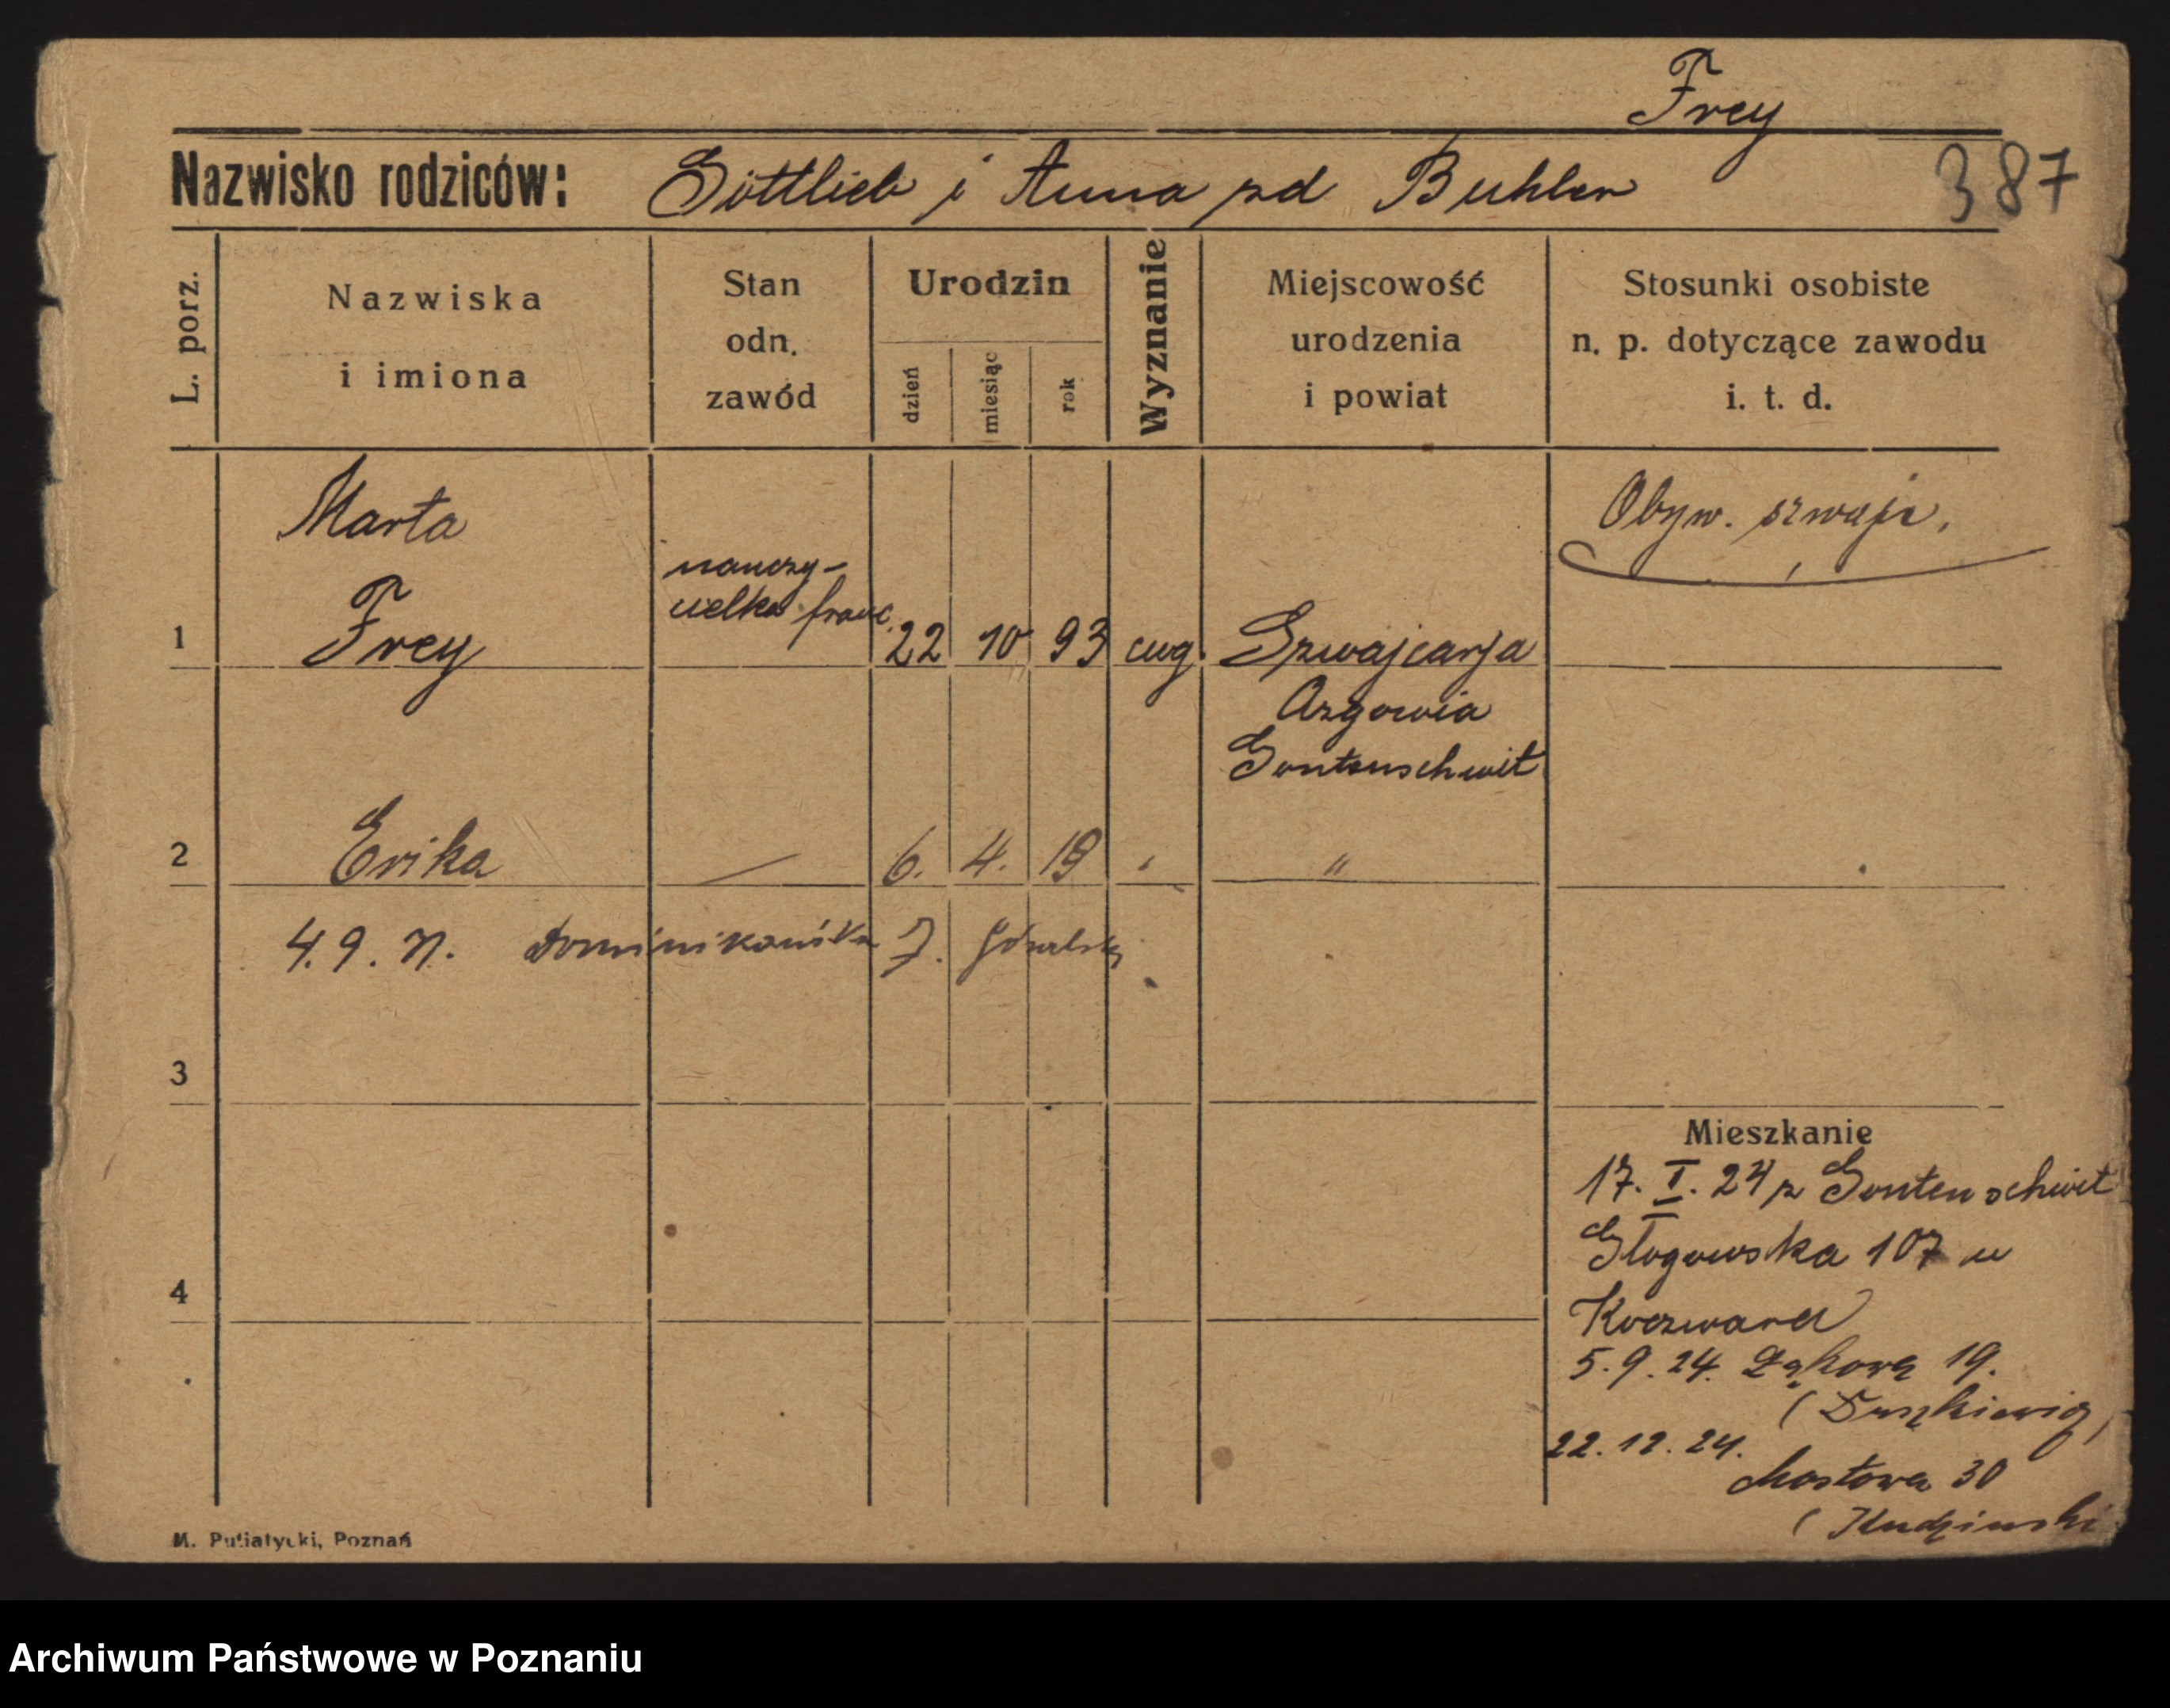 Frey
Nazwisko rodziców: Gottlieb i Anna zd Buhler
387
L. porz.
Nazwiska i imiona
Stan odn. zawód
Urodzin
dzień miesiąc rok
Wyznanie
Miejscowość urodzenia i powiat
Stosunki osobiste n. p. dotyczące zawodu i. t. d.
Marta
Obyw. szwajc.
nauczy-
cielka franc.
1 Frey 22 10 93 ewg. Szwajcarja
Argowia
Gontenschwit
2 Erika — 6. 4. 19 " "
4. 9. Dominikańska 7.
3
Mieszkanie
17. I. 24 z Gontenschwit
Głogowska 107 u
4
Koczwara
5. 9. 24. Łąkowa 19.
22. 12. 24.
Mostowa 30
M. Putiatycki, Poznań
Archiwum Państwowe w Poznaniu